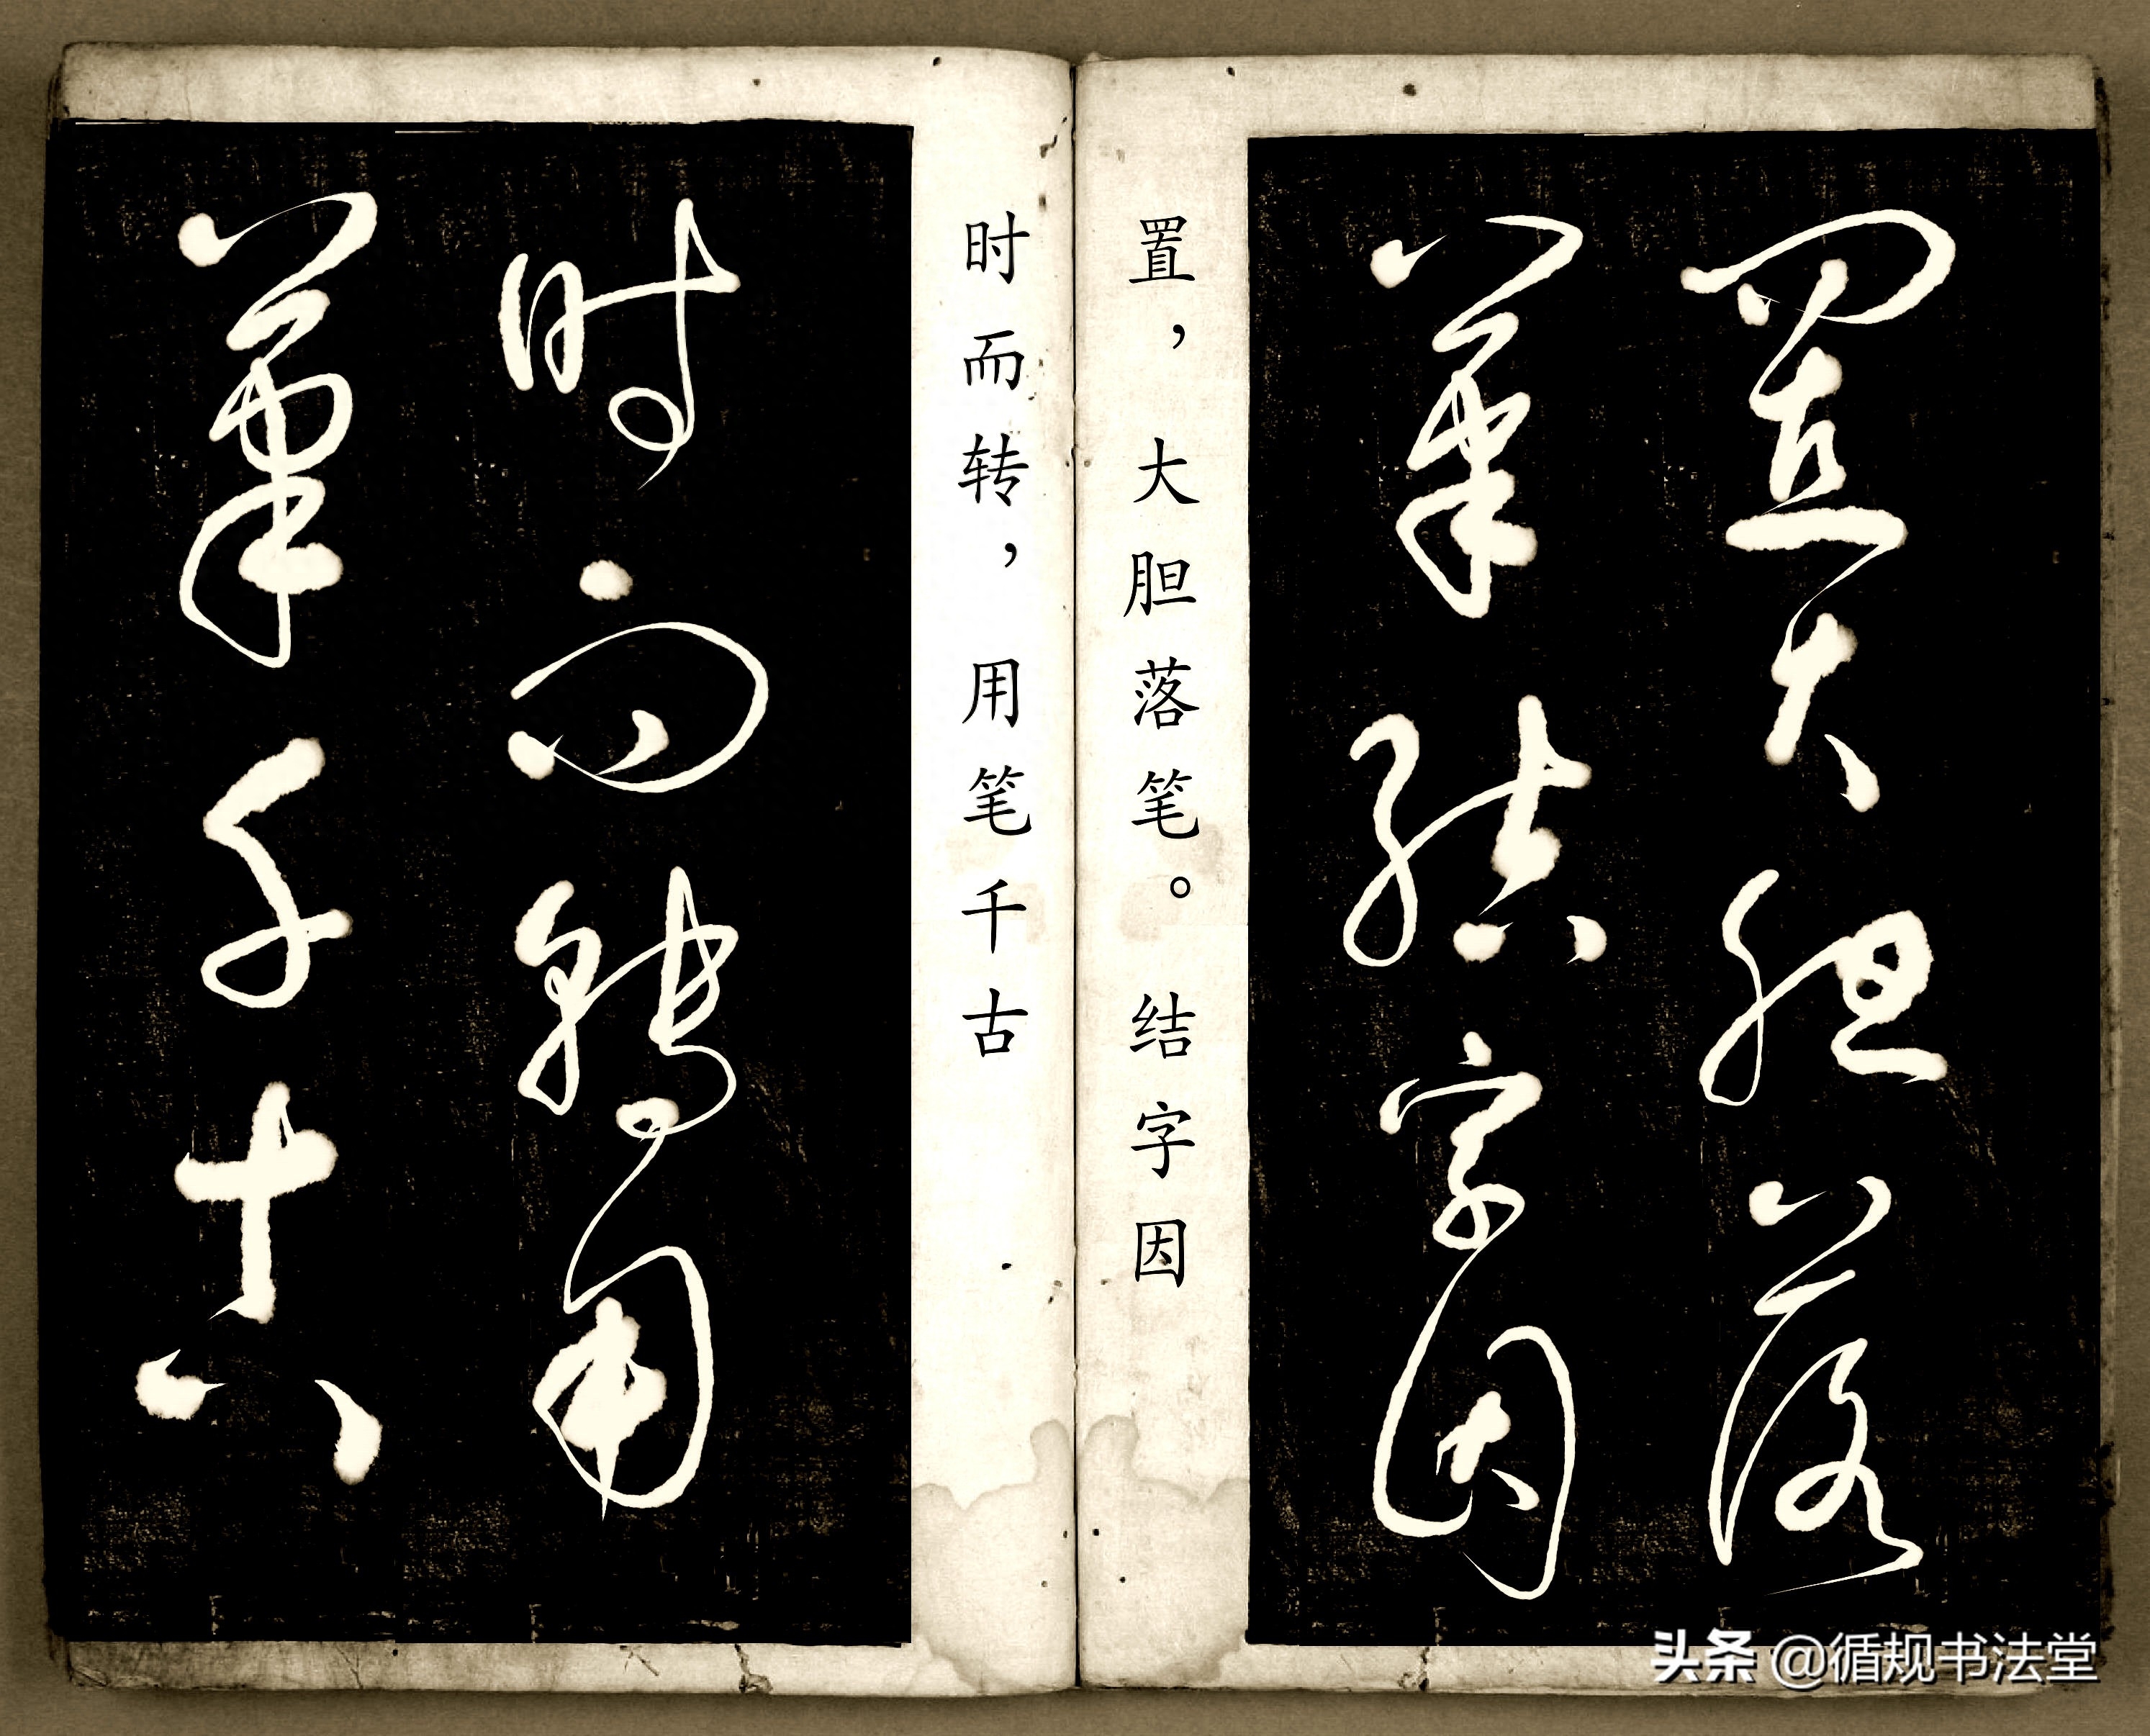 置大胆落
笔结字因
置，大胆落笔。结字因
时而转，用笔千古
时而转用
笔千古
头条 @循规书法堂